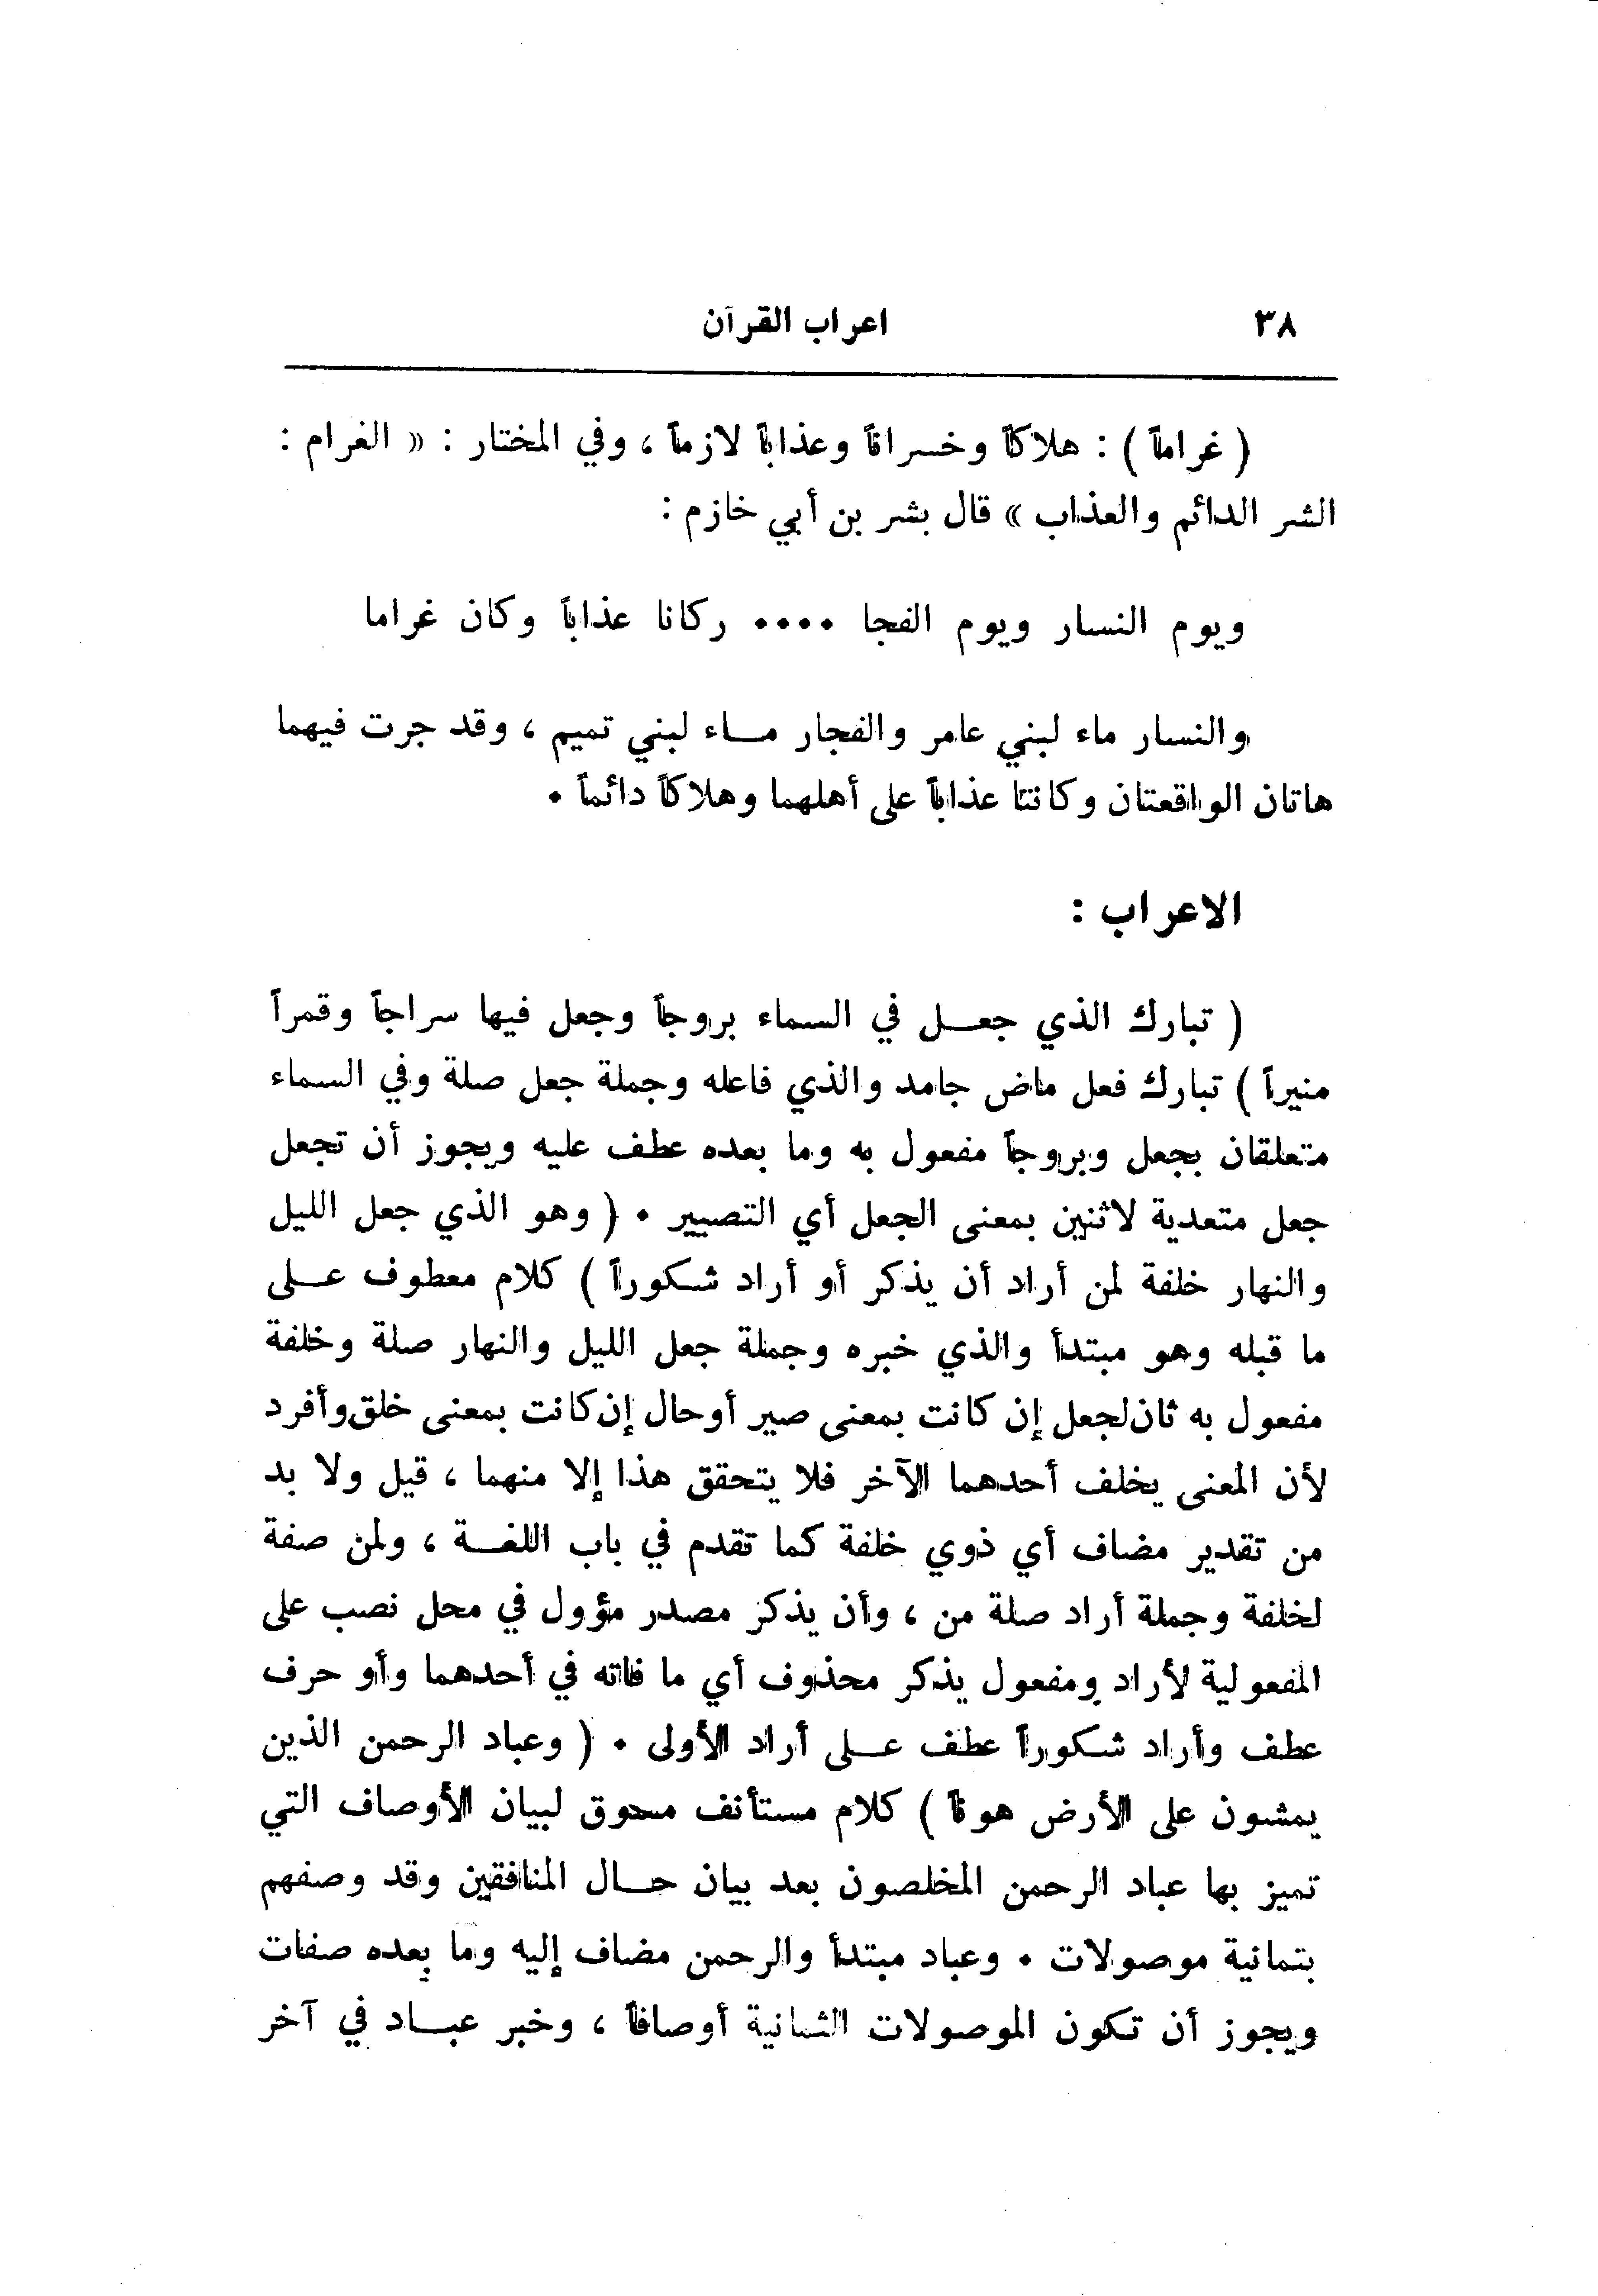 ٣٨ اعراب القرآن
( غراماً ) : هلاكاً وخسراناً وعذاباً لازماً ، وفي المختار : « الغرام :
الشر الدائم والعذاب » قال بشر بن أبي خازم :
ويوم النسار ويوم الفجا ٠٠٠٠ ركانا عذاباً وكان غراما
والنسار ماء لبني عامر والفجار مـاء لبني تميم ، وقد جرت فيهما
هاتان الواقعتان وكانتا عذاباً على أهلهما وهلاكاً دائماً ٠
الاعراب :
( تبارك الذي جعـل في السماء بروجاً وجعل فيها سراجاً وقمراً
منيراً ) تبارك فعل ماض جامد والذي فاعله وجملة جعل صلة وفي السماء
متعلقان بجعل وبروجاً مفعول به وما بعده عطف عليه ويجوز أن تجعل
جعل متعدية لاثنين بمعنى الجعل أي التصيير ٠ ( وهو الذي جعل الليل
والنهار خلفة لمن أراد أن يذكر أو أراد شكوراً ) كلام معطوف عـلى
ما قبله وهو مبتدأ والذي خبره وجملة جعل الليل والنهار صلة وخلفة
مفعول به ثان لجعل إن كانت بمعنى صير أو حال إن كانت بمعنى خلق وأفرد
لأن المعنى يخلف أحدهما الآخر فلا يتحقق هذا إلا منهما ، قيل ولا بد
من تقدير مضاف أي ذوي خلفة كما تقدم في باب اللغـة ، ولمن صفة
لخلفة وجملة أراد صلة من ، وأن يذكر مصدر مؤول في محل نصب على
المفعولية لأراد ومفعول يذكر محذوف أي ما فاته في أحدهما وأو حرف
عطف وأراد شكوراً عطف عـلى أراد الأولى ٠ ( وعباد الرحمن الذين
يمشون على الأرض هوناً ) كلام مستأنف مسوق لبيان الأوصاف التي
تميز بها عباد الرحمن المخلصون بعد بيان حـال المنافقين وقد وصفهم
بثمانية موصولات ٠ وعباد مبتدأ والرحمن مضاف إليه وما بعده صفات
ويجوز أن تكون الموصولات الثمانية أوصافاً ، وخبر عبـاد في آخر